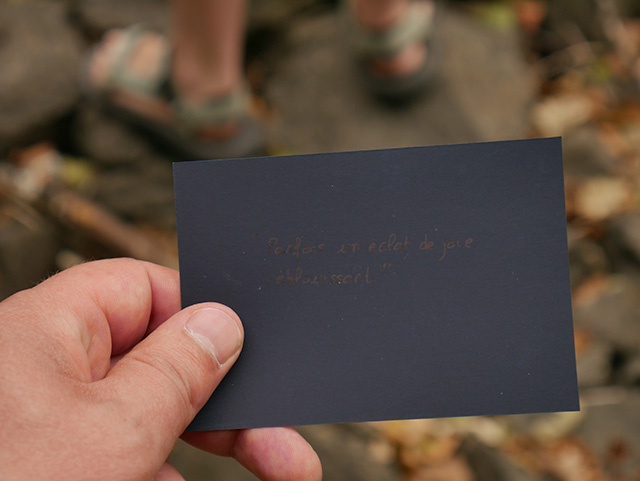 Parfois un eclat de joie
eblouissant